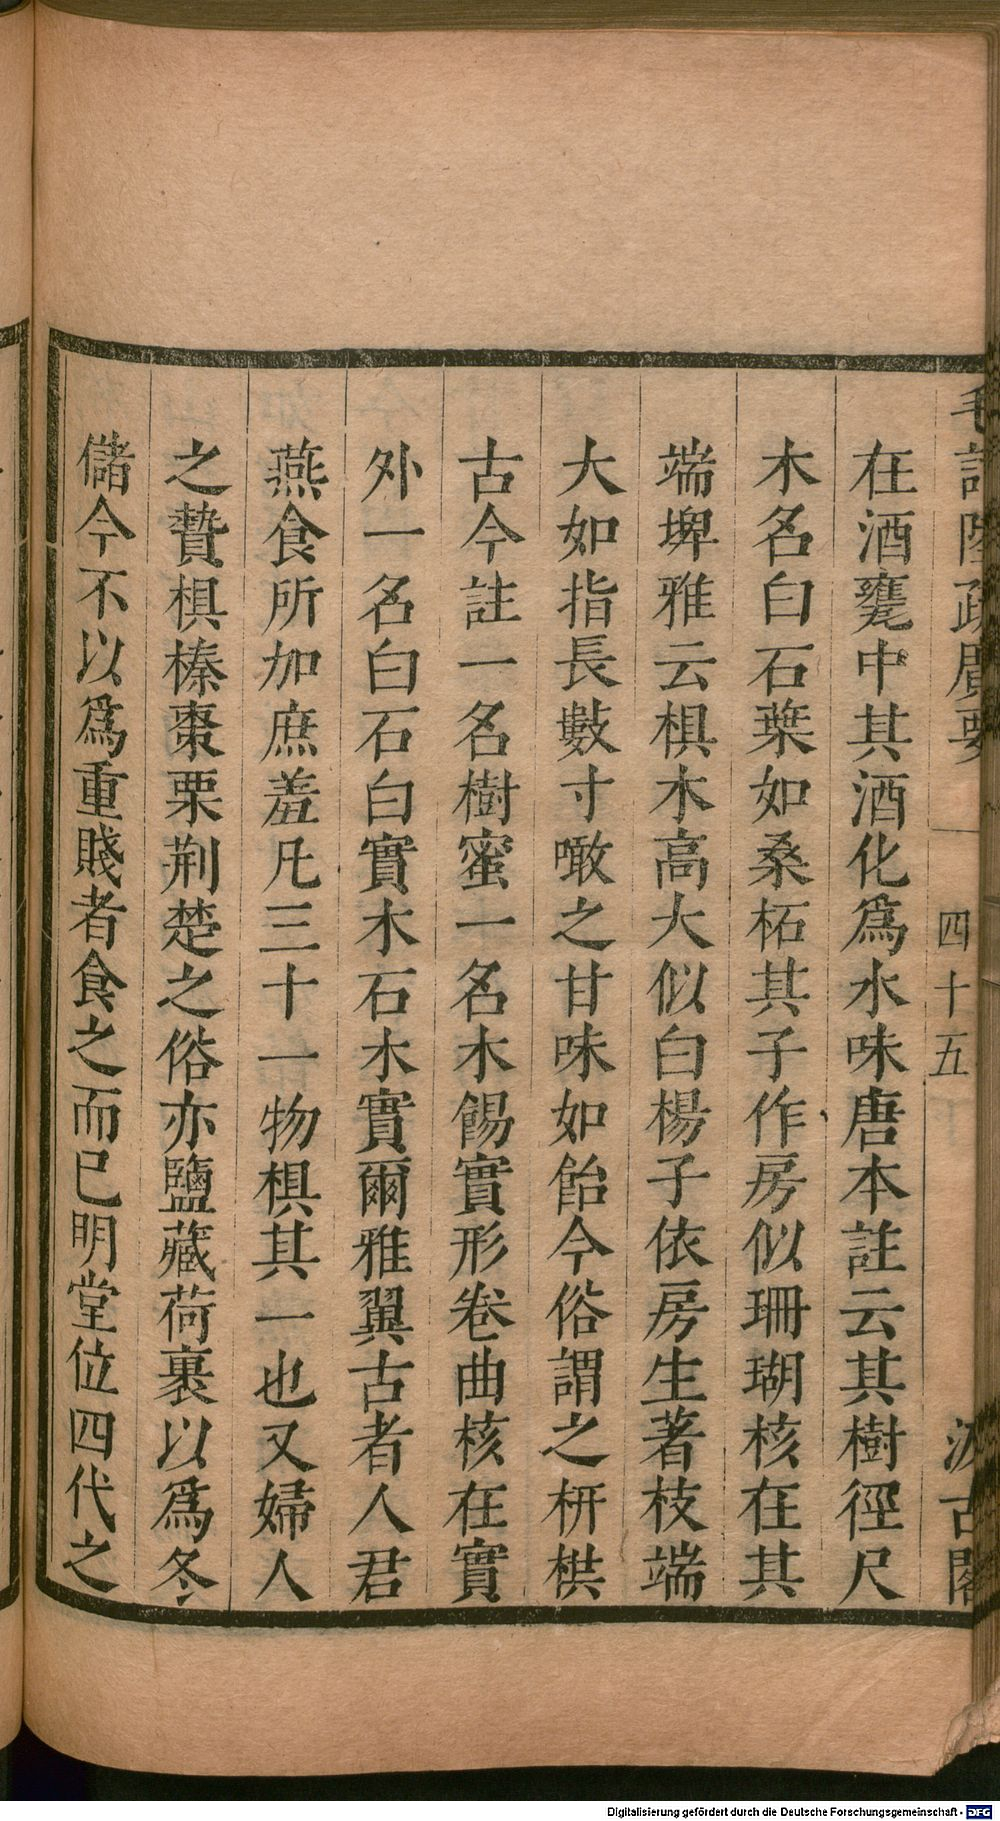 毛詩陸疏廣要
四十五
汲古閣
在酒甕中其酒化為水味唐本註云其樹徑尺
木名白石葉如桑柘其子作房似珊瑚核在其
端埤雅云椇木高大似白楊子依房生著枝端
大如指長數寸噉之甘味如飴今俗謂之枅栱
古今註一名樹蜜一名木餳實形卷曲核在實
外一名白石白實木石木實爾雅翼古者人君
燕食所加庶羞凡三十一物椇其一也又婦人
之贄椇榛棗栗荆楚之俗亦鹽藏荷裹以為冬
儲今不以為重賤者食之而已明堂位四代之
Digitalisierung gefördert durch die Deutsche Forschungsgemeinschaft - DFG